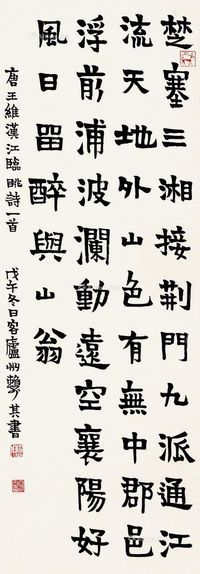 楚塞三湘接荆門九派通江
流天地外山色有無中郡邑
浮前浦波瀾動遠空襄陽好
風日留醉與山翁
唐王維漢江臨眺詩一首
戊午冬日客廬州 其書